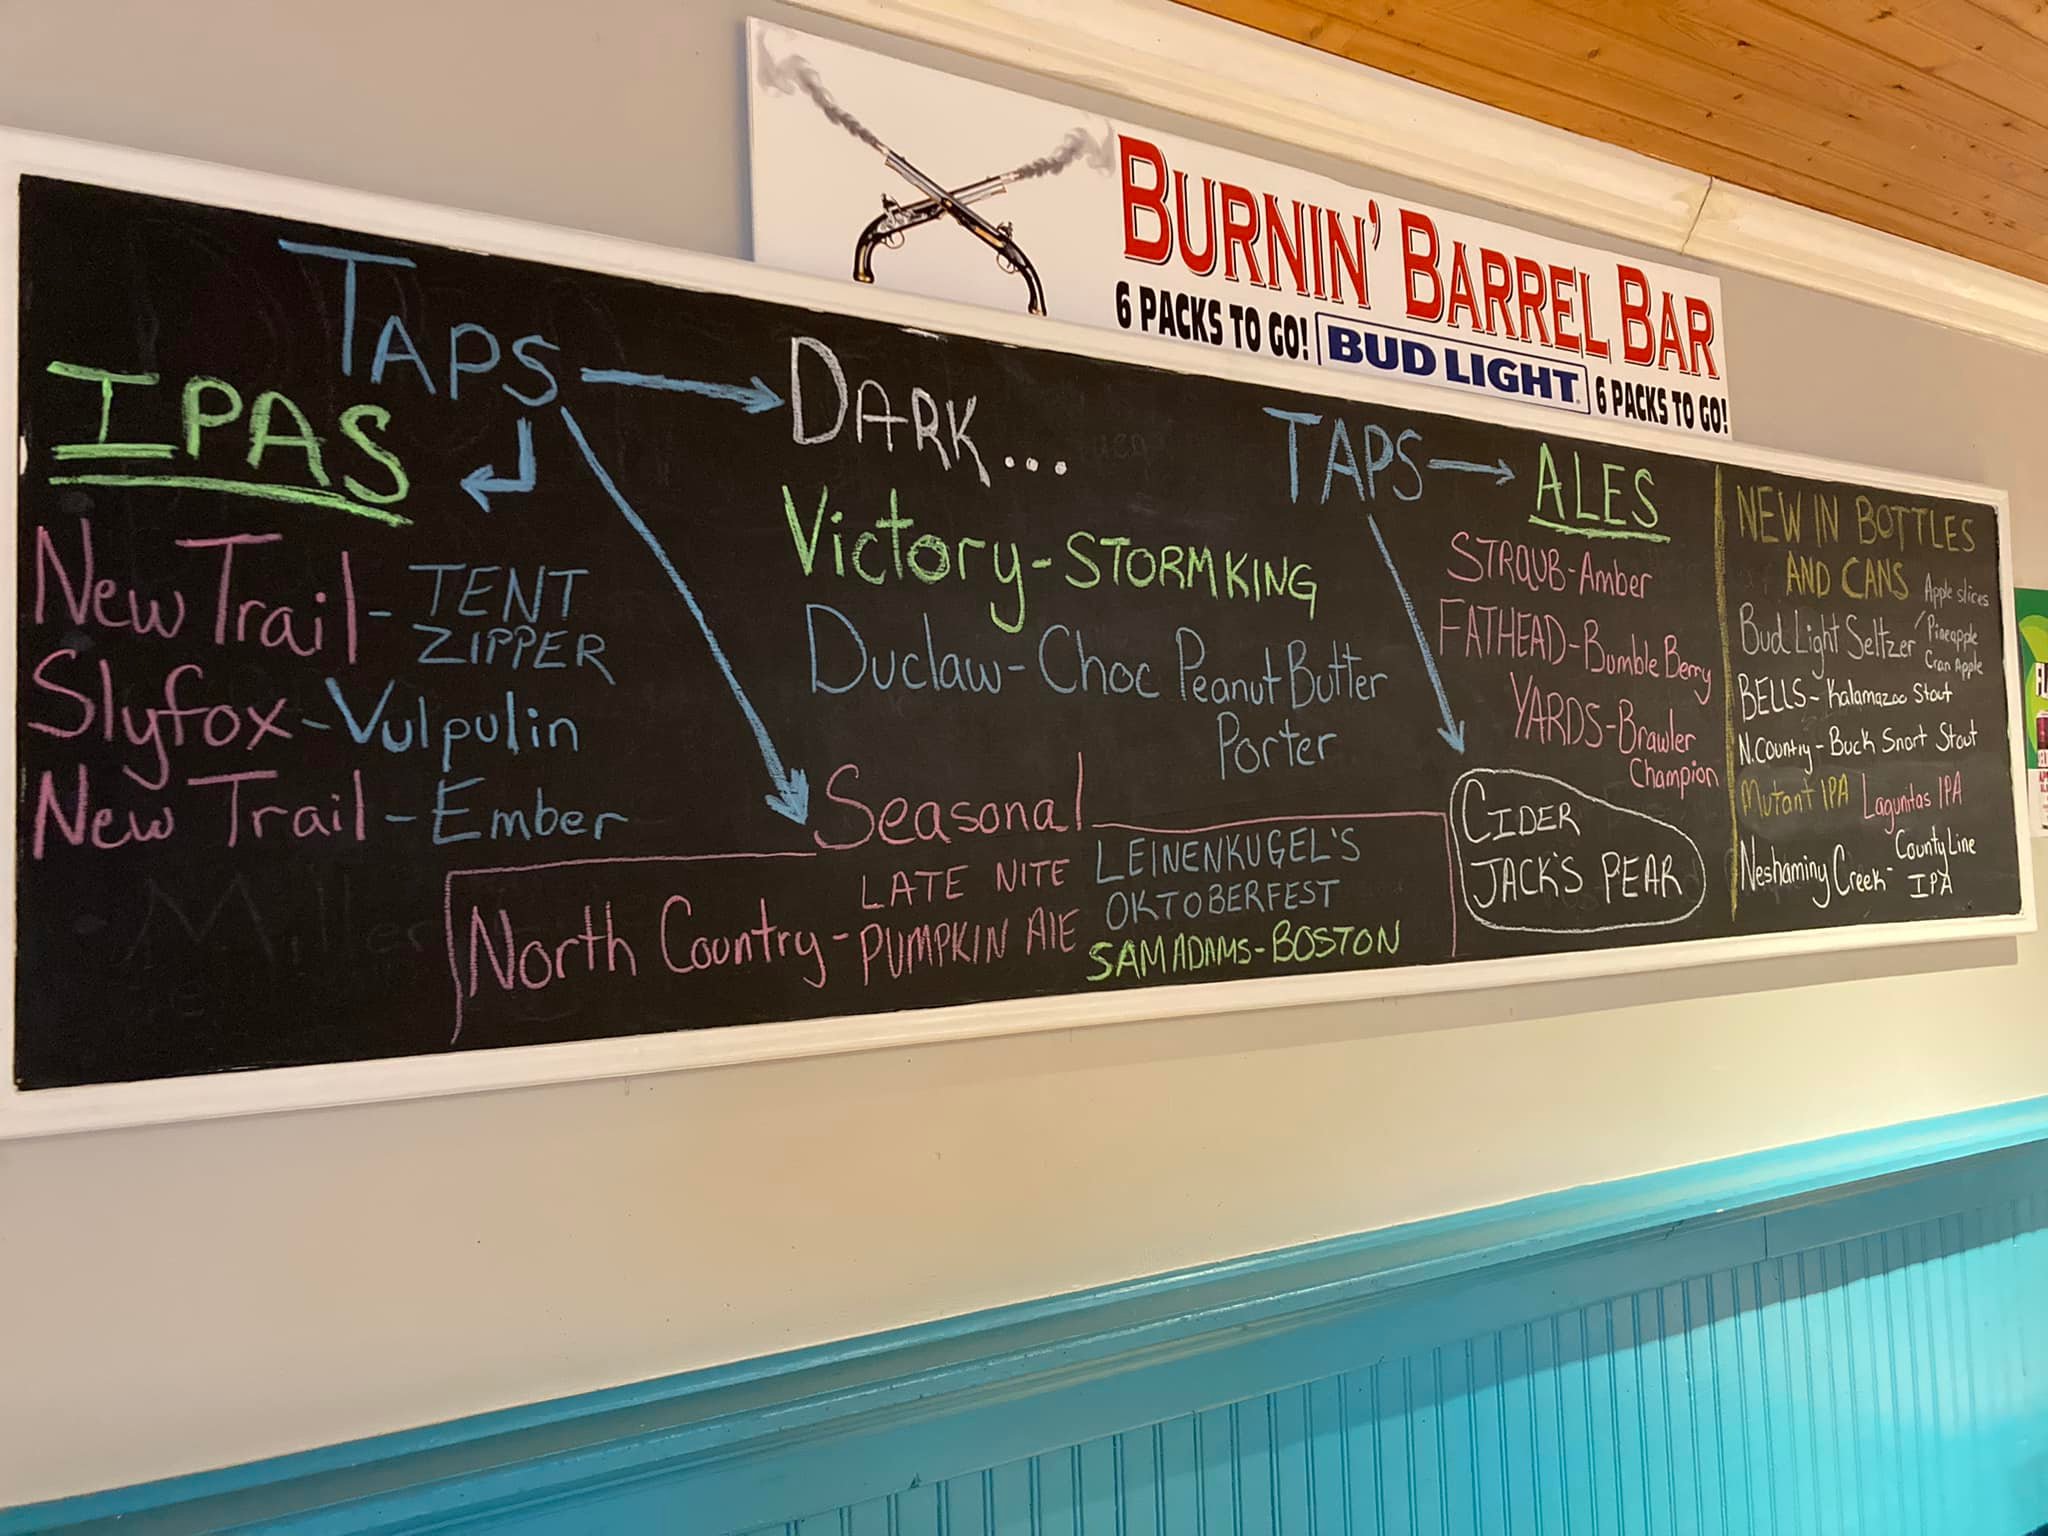 BURNIN' BARREL BAR
6 PACKS TO GO! BUD LIGHT 6 PACKS TO GO!
TAPS
IPAS
New Trail - TENT
ZIPPER
Slyfox - Vulpulin
New Trail - Ember
Miller
DARK...
Victory - STORMKING
Duclaw - Choc Peanut Butter
Porter
Seasonal
North Country - LATE NITE
PUMPKIN AlE
LEINENKUGEL'S
OKTOBERFEST
SAM ADAMS - BOSTON
TAPS
ALES
STRAUB - Amber
FATHEAD - Bumble Berry
YARDS - Brawler
Champion
CIDER
JACK'S PEAR
NEW IN BOTTLES
AND CANS
Bud Light Seltzer
Apple slices
Pineapple
Cran Apple
BELLS - Kalamazoo Stout
N.Country - Buck Snort Stout
Mutant IPA Lagunitas IPA
Neshaminy Creek - County Line
IPA